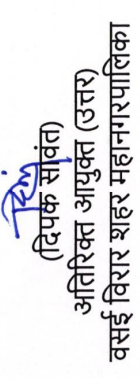 (दिपक सावंत)
अतिरिक्त आयुक्त (उत्तर)
वसई विरार शहर महानगरपालिका